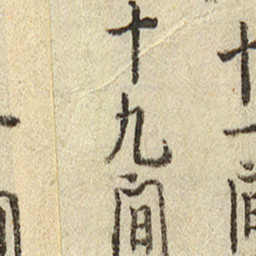 十一間
十九間